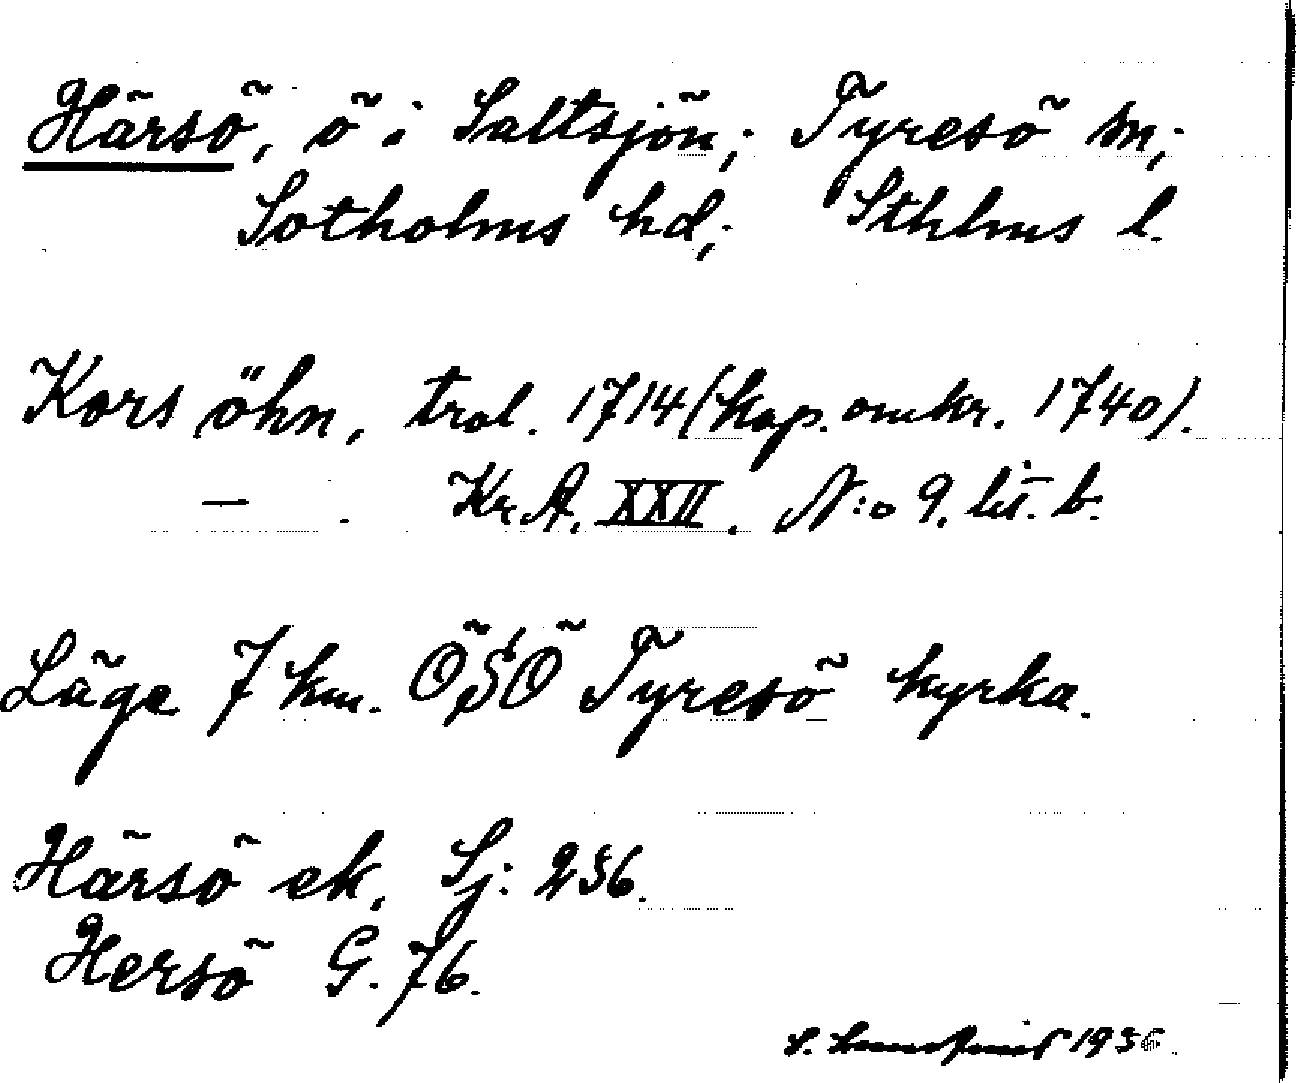 Härsö, ö i Saltsjön; Tyresö sn;
Sotholms hd; Sthlms l.
Kors öhn, trol. 1714 (kop. omkr. 1740).
— . Kr. A. XXII. N:o 9. lit. b.
Läge 7 km. ÖSÖ Tyresö kyrka.
Härsö ek. Sj: 256.
Hersö G. 76.
S. 1936.